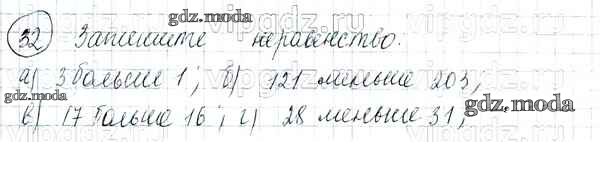 gdz.moda
32 Запишите неравенство.
а) 3 больше 1; б) 121 меньше 203;
gdz.moda
в) 17 больше 16; г) 28 меньше 31;
gdz.moda